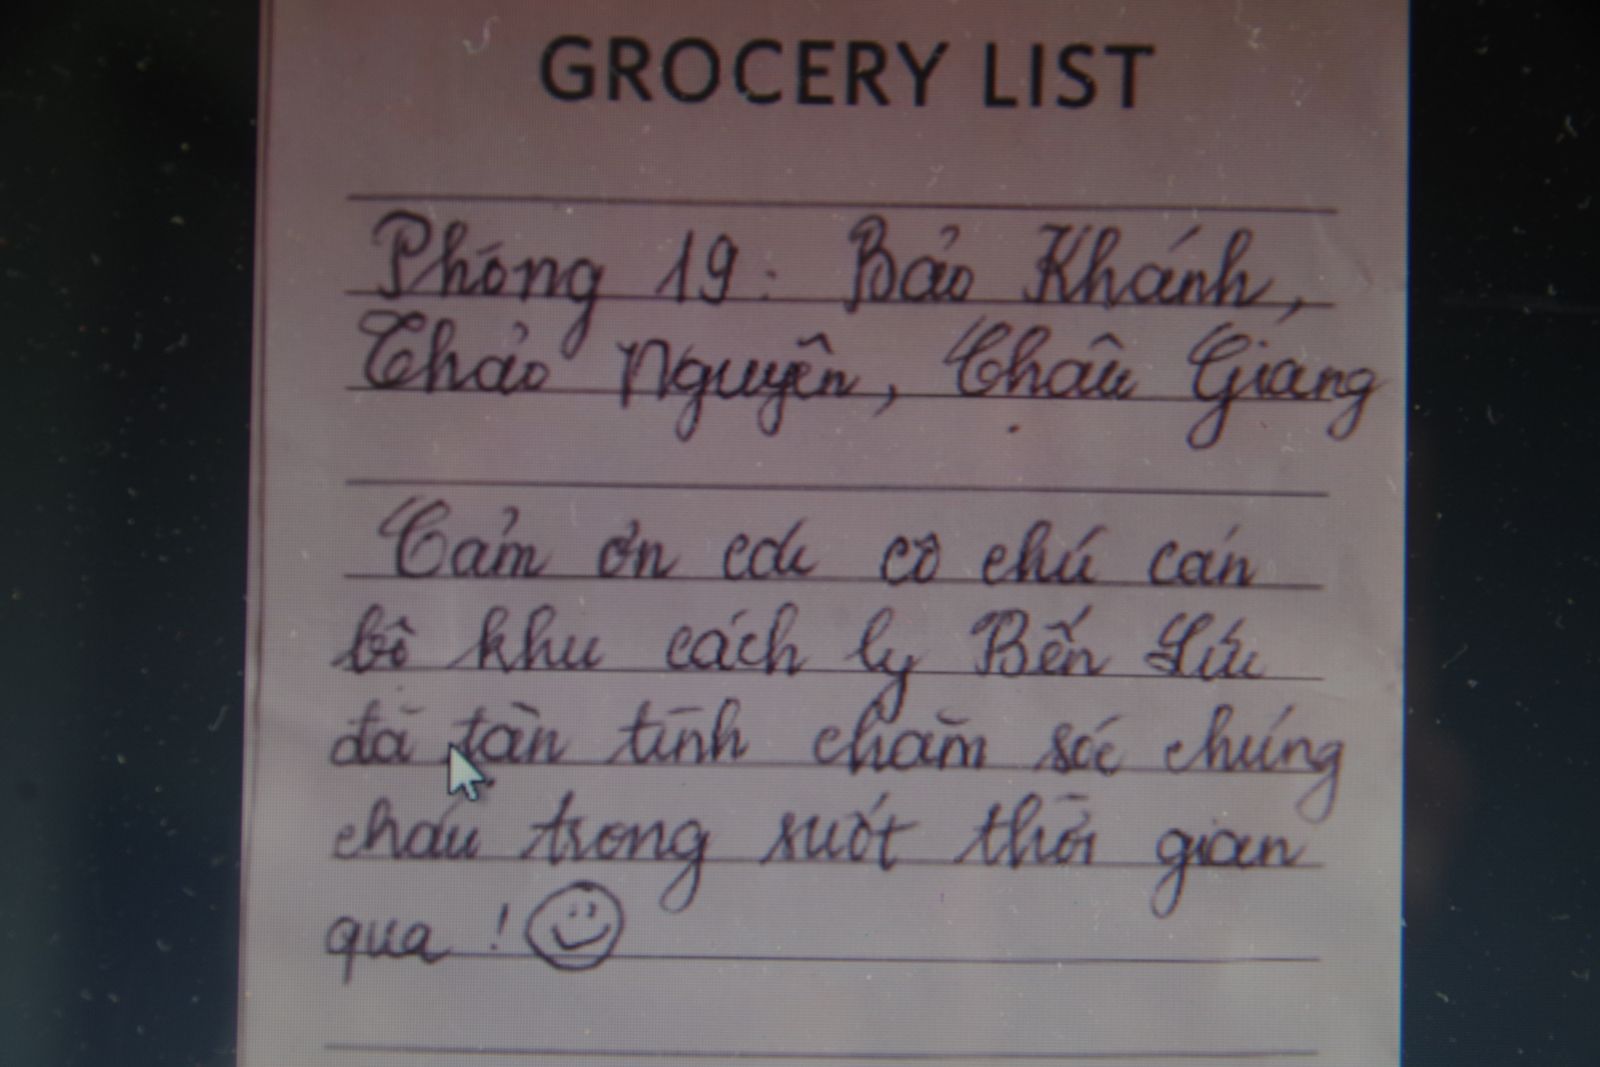 GROCERY LIST
Phòng 19: Bảo Khánh,
Thảo Nguyên, Châu Giang
Cảm ơn các cô chú cán
bộ khu cách ly Bến Lức
đã tận tình chăm sóc chúng
cháu trong suốt thời gian
qua !